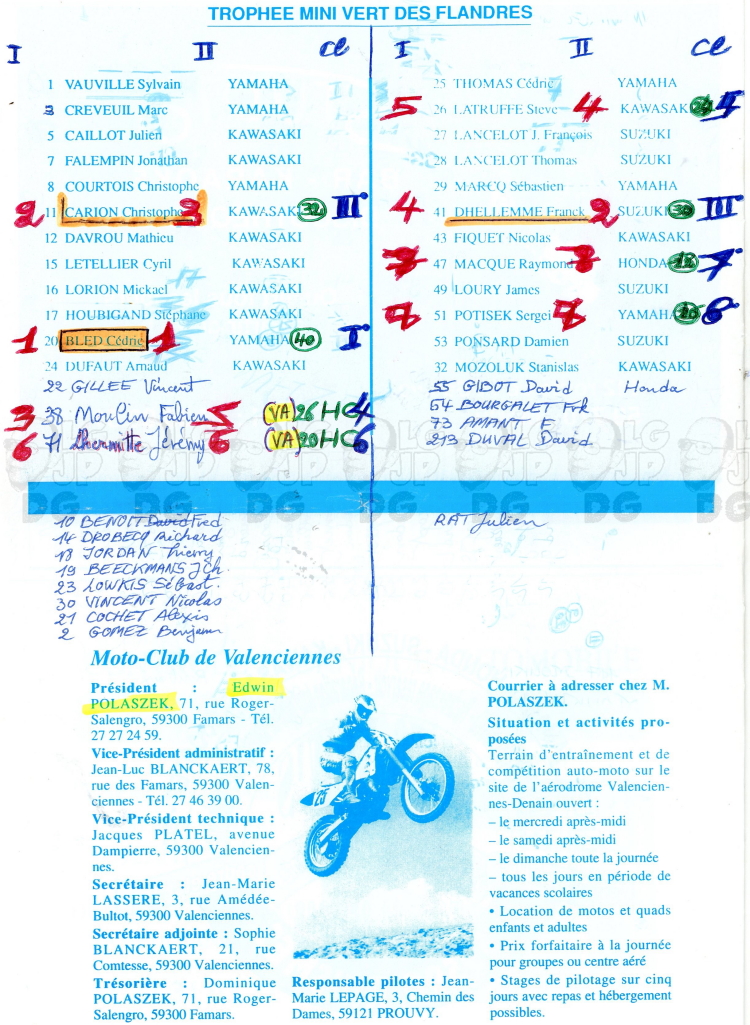 TROPHEE MINI VERT DES FLANDRES
I II Cl
1 VAUVILLE Sylvain YAMAHA
3 CREVEUIL Marc YAMAHA
5 CAILLOT Julien KAWASAKI
7 FALEMPIN Jonathan KAWASAKI
8 COURTOIS Christophe YAMAHA
2 11 CARION Christophe 3 KAWASAKI 32 III°
12 DAVROU Mathieu KAWASAKI
15 LETELLIER Cyril KAWASAKI
16 LORION Mickael KAWASAKI
17 HOUBIGAND Stéphane KAWASAKI
1 20 BLED Cédric 1 YAMAHA 40 I°
24 DUFAUT Arnaud KAWASAKI
22 GILLEE Vincent
3 38 Moulin Fabien 5 (VA) 26 HC 4
6 71 Lhermitte Jérémy 6 (VA) 20 HC 6
I II Cl
25 THOMAS Cédric YAMAHA
5 26 LATRUFFE Steve 4 KAWASAKI
27 LANCELOT J. François SUZUKI
28 LANCELOT Thomas SUZUKI
29 MARCQ Sébastien YAMAHA
4 41 DHELLEMME Franck 2 SUZUKI 30 III
43 FIQUET Nicolas KAWASAKI
47 MACQUE Raymond HONDA 7°
49 LOURY James SUZUKI
51 POTISEK Sergei YAMAHA
53 PONSARD Damien SUZUKI
32 MOZOLUK Stanislas KAWASAKI
55 GIBOT David Honda
54 BOURGALET Frk
73 AMANT E
213 DUVAL David
DG JP DG JP DG JP
10 BENOIT David Fred
14 DROBECQ Richard
18 JORDAN Thierry
19 BEECKMANS J Ch.
23 LOWKIS Sébast.
30 VINCENT Nicolas
21 COCHET Alexis
2 GOMEZ Benjamin
RAT Julien
Moto-Club de Valenciennes
Président : Edwin
POLASZEK, 71, rue Roger-
Salengro, 59300 Famars - Tél.
27 27 24 59.
Vice-Président administratif :
Jean-Luc BLANCKAERT, 78,
rue des Famars, 59300 Valen-
ciennes - Tél. 27 46 39 00.
Vice-Président technique :
Jacques PLATEL, avenue
Dampierre, 59300 Valencien-
nes.
Secrétaire : Jean-Marie
LASSERE, 3, rue Amédée-
Bultot, 59300 Valenciennes.
Secrétaire adjointe : Sophie
BLANCKAERT, 21, rue
Comtesse, 59300 Valenciennes.
Trésorière : Dominique
POLASZEK, 71, rue Roger-
Salengro, 59300 Famars.
Responsable pilotes : Jean-
Marie LEPAGE, 3, Chemin des
Dames, 59121 PROUVY.
Courrier à adresser chez M.
POLASZEK.
Situation et activités pro-
posées
Terrain d'entraînement et de
compétition auto-moto sur le
site de l'aérodrome Valencien-
nes-Denain ouvert :
– le mercredi après-midi
– le samedi après-midi
– le dimanche toute la journée
– tous les jours en période de
vacances scolaires
• Location de motos et quads
enfants et adultes
• Prix forfaitaire à la journée
pour groupes ou centre aéré
• Stages de pilotage sur cinq
jours avec repas et hébergement
possibles.